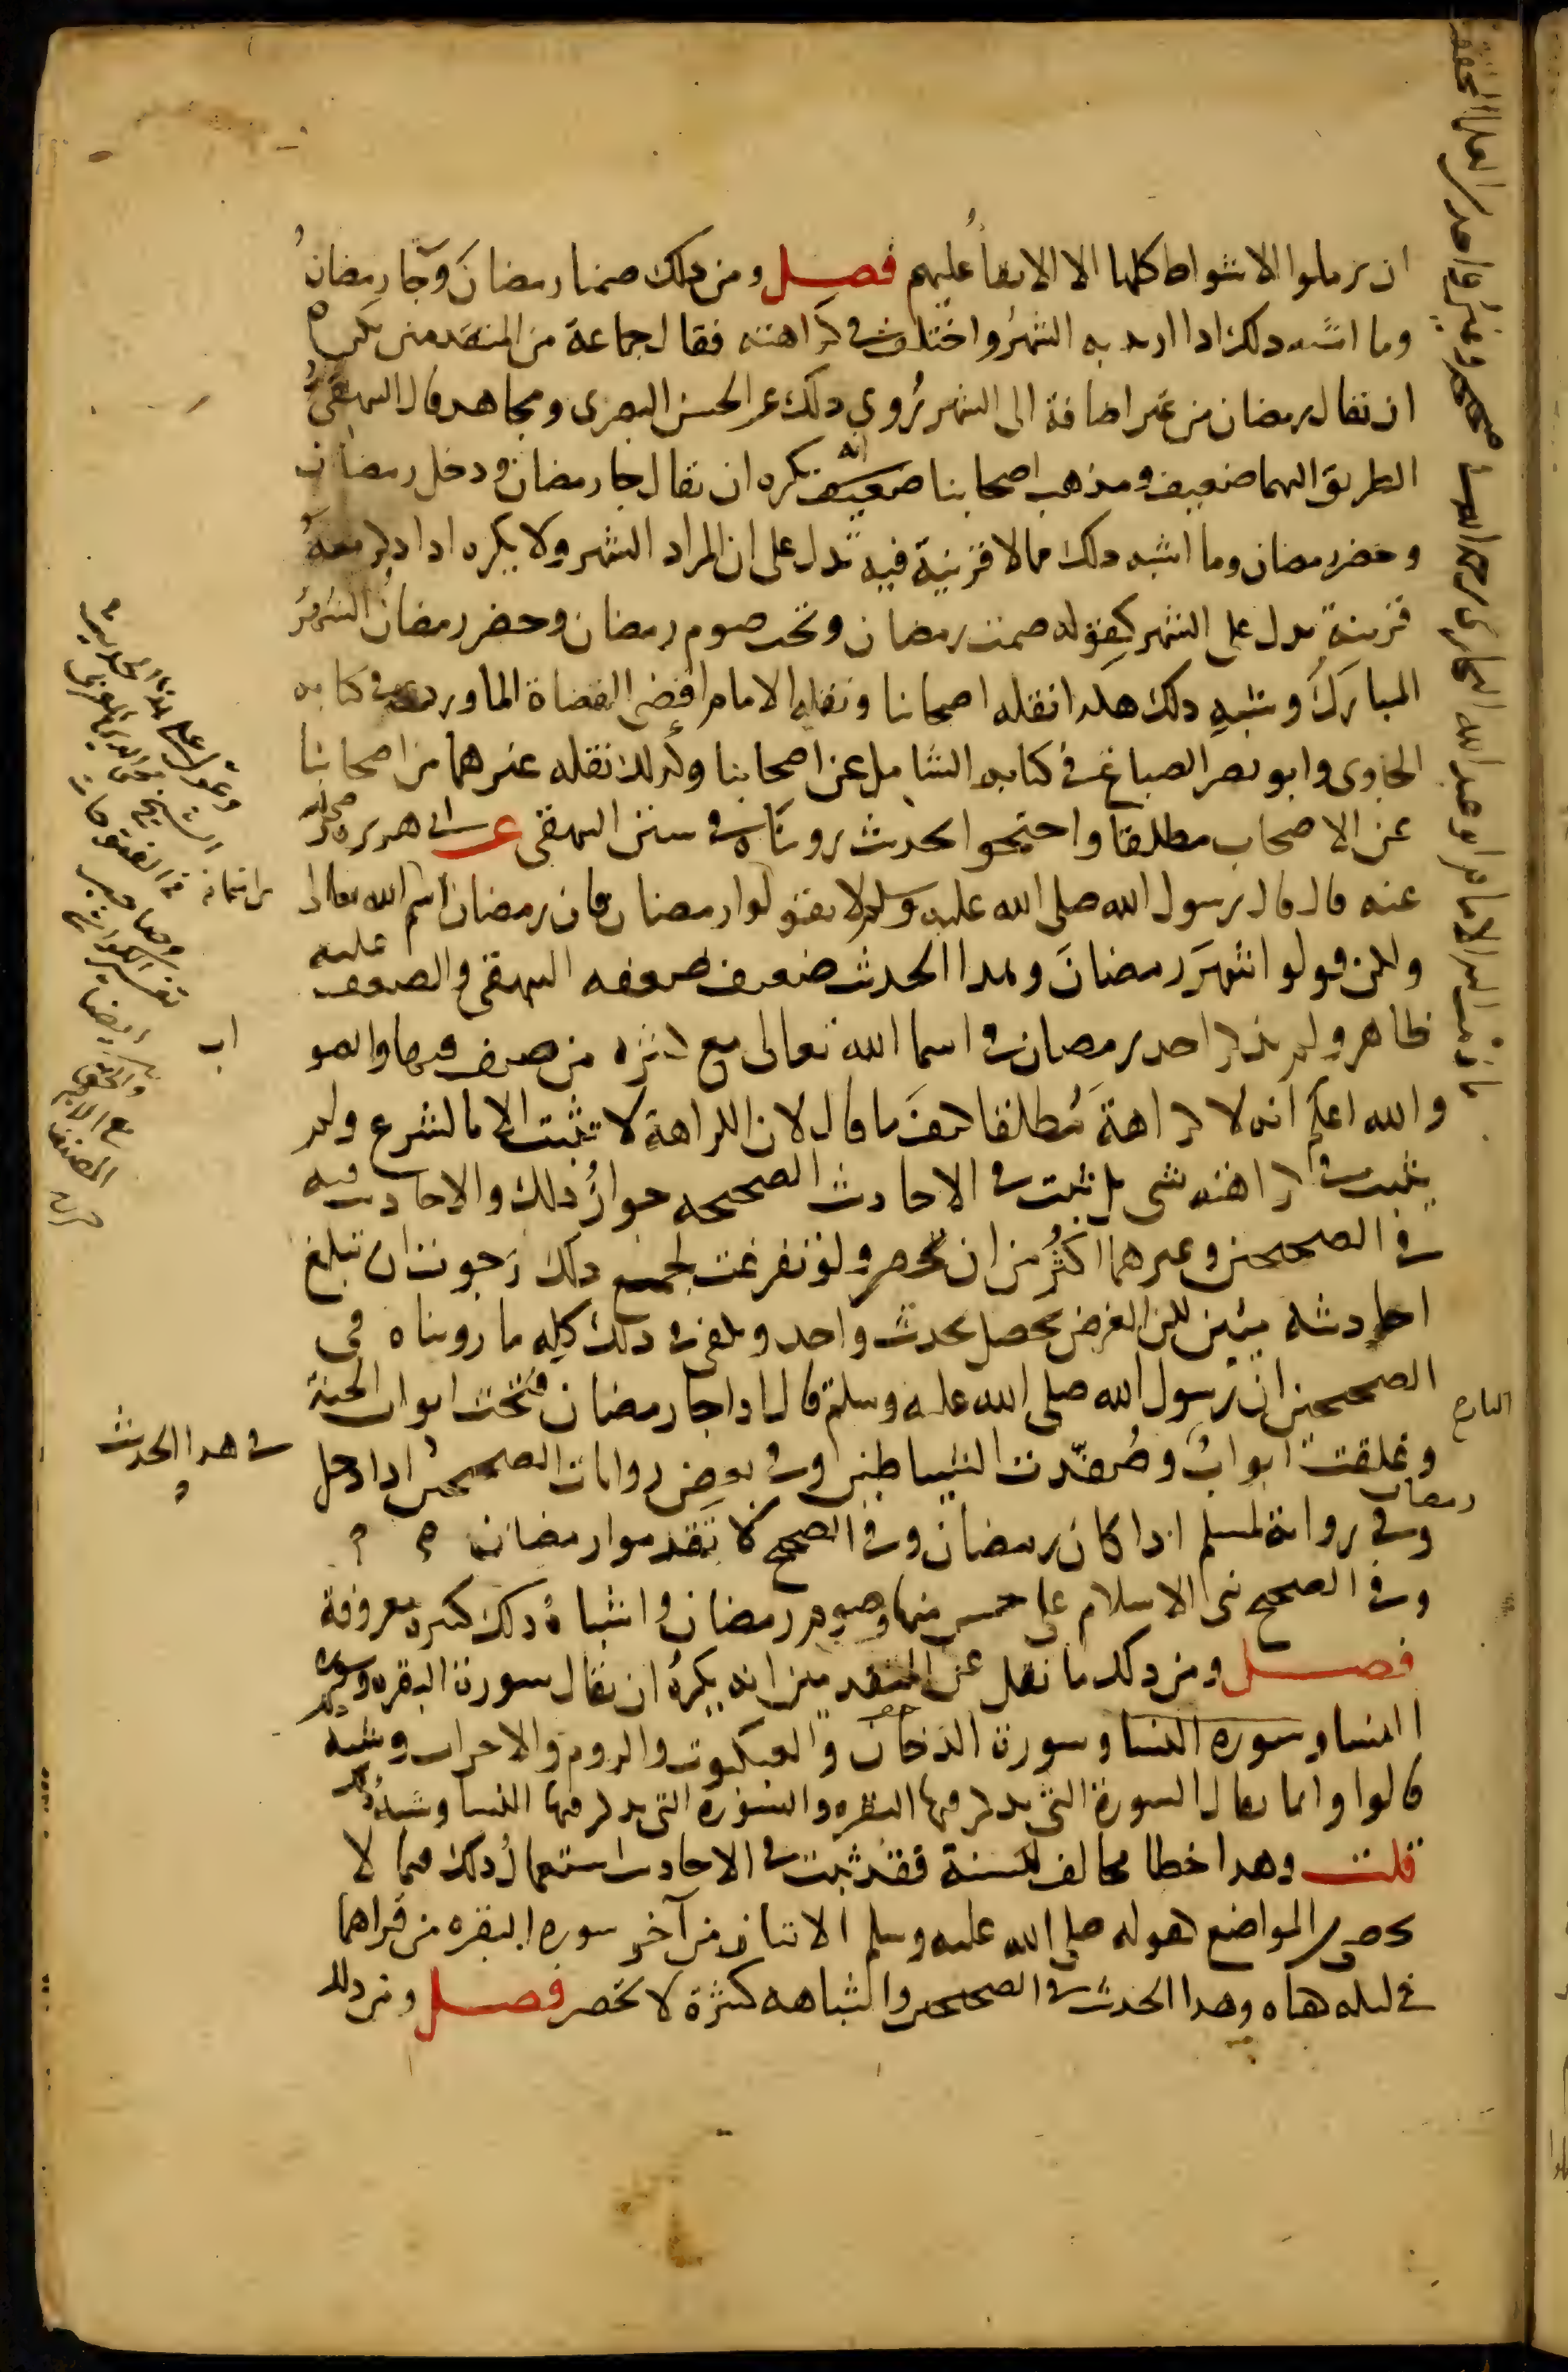 ان يرملوا الاشواط كلها الا الابقا عليهم فصل ومن ذلك صمنا رمضان وجا رمضان
وما اشبه ذلك اذا اريد به الشهر واختلف في كراهته فقال جماعة من المتقدمين يكره
ان يقال رمضان من غير اضافة الى الشهر روي ذلك عن الحسن البصرى ومجاهد قال البيهقي
الطريق اليهما ضعيف ومذهب اصحابنا انه يكره ان يقال جا رمضان ودخل رمضان
وحضر رمضان وما اشبه ذلك مما لا قرينة فيه تدل على ان المراد الشهر ولا يكره اذا ذكر معه
قرينة تدل على الشهر كقوله صمت رمضان و صوم رمضان وحضر رمضان الشهر
المبارك وشبه ذلك هكذا نقله اصحابنا ونقله الامام اقضى القضاة الماوردي في كتابه
الحاوى وابو نصر الصباغ في كتابه الشامل عن اصحابنا وكذلك نقله غيرهما من اصحابنا
عن الاصحاب مطلقا واحتجوا بحديث رويناه في سنن البيهقى عن ابى هريره رضي الله
عنه قال قال رسول الله صلى الله عليه وسلم لا تقولوا رمضان فان رمضان اسم الله تعالى
ولكن قولوا شهر رمضان وهذا الحديث ضعيف ضعفه البيهقى والضعف عليه
ظاهر ولم يذكر احد رمضان في اسما الله تعالى مع كثرة من صنف فيها والصو
اب
والله اعلم انه لا كراهة مطلقا كيف ما قال لان الكراهة لا تثبت الا بالشرع ولم
يثبت في كراهته شى بل ثبت في الاحاديث الصحيحه جواز ذلك والاحاديث فيه
في الصحيحين وغيرهما اكثر من ان تحصر ولو تفرغت لجمع ذلك رجوت ان تبلغ
احاديثه مئين لكن الغرض يحصل بحديث واحد ويكفى في ذلك كله ما رويناه في
الصحيحين ان رسول الله صلى الله عليه وسلم قال اذا جا رمضان فتحت ابواب الجنة
وغلقت ابواب النار وصفدت الشياطين وفي بعض روايات الصحيحين في هذا الحديث اذا دخل
رمضان
وفي رواية لمسلم اذا كان رمضان وفي الصحيح لا تقدموا رمضان
وفي الصحيح بنى الاسلام على خمس منها وصوم رمضان واشباه ذلك كثيره معروفة
فصل ومن ذلك ما نقل عن المتقدمين انه يكره ان يقال سورة البقره وسورة
النسا وسورة الدخان والعنكبوت والروم والاحزاب وشبه
قالوا وانما يقال السورة التي يذكر فيها البقره والسورة التى يذكر فيها النسا وشبه ذلك
قلت وهذا خطا مخالف للسنة فقد ثبت في الاحاديث استعمال ذلك فيما لا
يحصى من المواضع كقوله صلى الله عليه وسلم الايتان من آخر سورة البقره من قراهما
في ليله كفتاه وهذا الحديث في الصحيحين واشباهه كثيرة لا تحصر فصل ومن ذلك